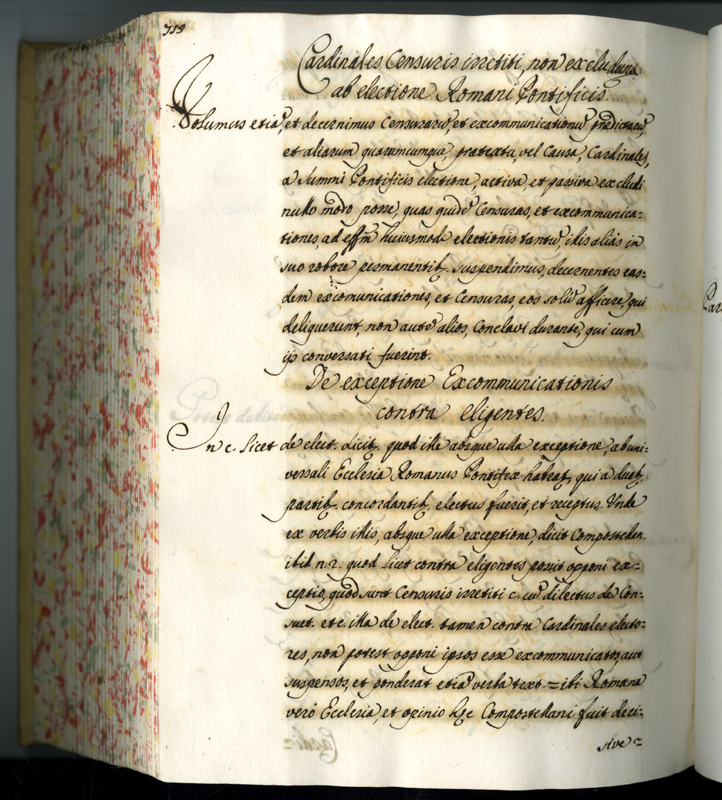 719
Cardinales Censuris irretiti, non excludunt
ab electione Romani Pontificis.
Volumus etiā, et decernimus Censurarū, et excommunicationū prędictarū,
et aliarum quarumcumque, pretextu, vel Causa, Cardinales,
a Summi Pontificis electione, activa, et passiva excludi
nullo modo posse, quas quidē Censuras, et excommunica-
tiones, ad effm̄ huiusmodi electionis tantū, illis alias in
suo robore permanentib. suspendimus, decernentes eas-
dem excomunicationes, et Censuras, eos solū afficere, qui
deliquerunt, non autē alios, Conclavi durante, qui cum
ijs conversati fuerint.
De exceptione Excommunicationis
contra eligentes.
In c. licet de elect. dicit, quod ille absque ulla exceptione, ab uni-
versali Ecclesia Romanus Pontifex habeat, qui a duab.
partib. concordantib. electus fuerit, et receptus. Unde
ex verbis illis, absque ulla exceptione, dicit Compostellan.
ibid n. 2. quod licet contra eligentes possit opponi ex-
ceptio, quod sunt Censuris irretiti c. cū dilectus de Con-
suet. et c. illa de elect. tamen contra Cardinales electo-
res, non potest opponi ipsos esse excommunicatos, aut
suspensos, et ponderat etiā verba text. = ibi Romana
verò Ecclesia, et opinio hęc Compostellani fuit deci-
sive =